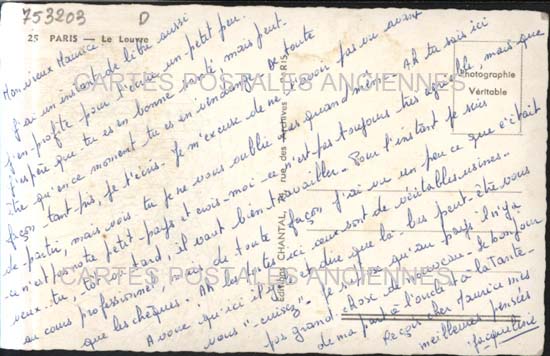 753203 D
25 PARIS — Le Louvre
Mon vieux Maurice
J'ai un instant de libre aussi
j'en profite pour t'écrire un petit peu.
J'espère que tu es en bonne santé mais peut-
être qu'en ce moment tu es en vendange. De toute
façon tant pis, je t'écris. Je m'excuse de ne t'avoir pas vu avant
de partir, mais vois-tu je ne vous oublie pas quand même. Ah tu sais ici
ce n'est pas notre petit pays et crois-moi ce n'est pas toujours très agréable, mais que
veux-tu, tôt ou tard, il vaut bien travailler. Pour l'instant je suis
au cours professionnel. de toute façon j'ai vu un peu ce que c'était
que les chèques. Ah les postes ici ce sont de véritables usines.
Avoue qu'ici il que là-bas peut-être vous
vous "cuisez". Je qu'au pays il n'y a
pas grand chose de nouveau. de bonjour
de ma part à l'oncle et à la tante.
Reçois cher Maurice mes
meilleures pensées
Jacqueline
Editions CHANTAL, rue des Archives PARIS
Photographie
Véritable
CARTES POSTALES ANCIENNES
CARTES POSTALES ANCIENNES